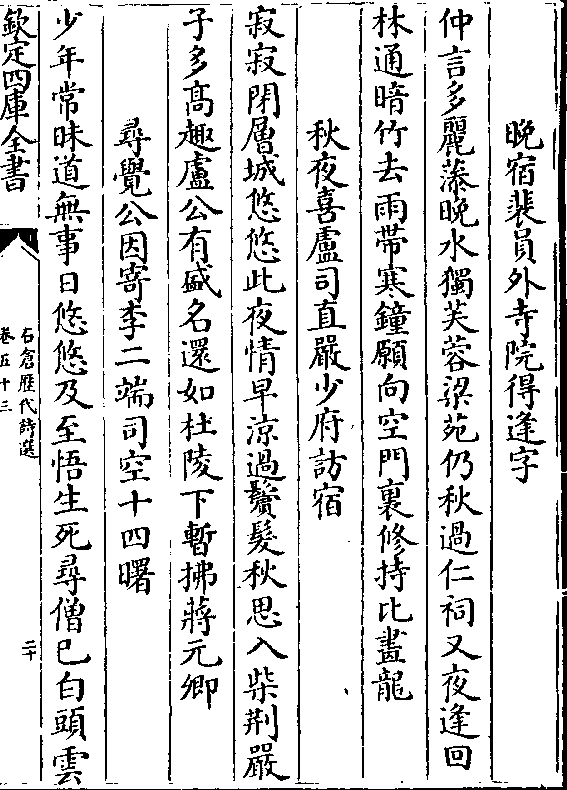 晚宿裴員外寺院得逢字
仲言多麗藻晚水獨芙蓉梁苑仍秋過仁祠又夜逢回
林通暗竹去雨帶寒鐘願向空門裏修持比畫龍
秋夜喜盧司直嚴少府訪宿
寂寂閉層城悠悠此夜情早涼過鬢髮秋思入柴荆嚴
子多髙趣盧公有盛名還如杜陵下暫拂蔣元卿
尋覺公因寄李二端司空十四曙
少年常昧道無事日悠悠及至悟生死尋僧已白頭雲
欽定四庫全書
石倉歴代詩選
卷五十三
二十